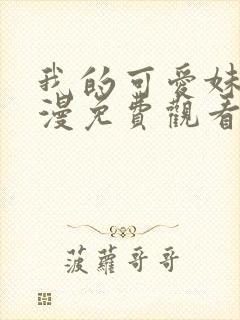 我的可愛妹
漫免費觀看
菠蘿哥哥